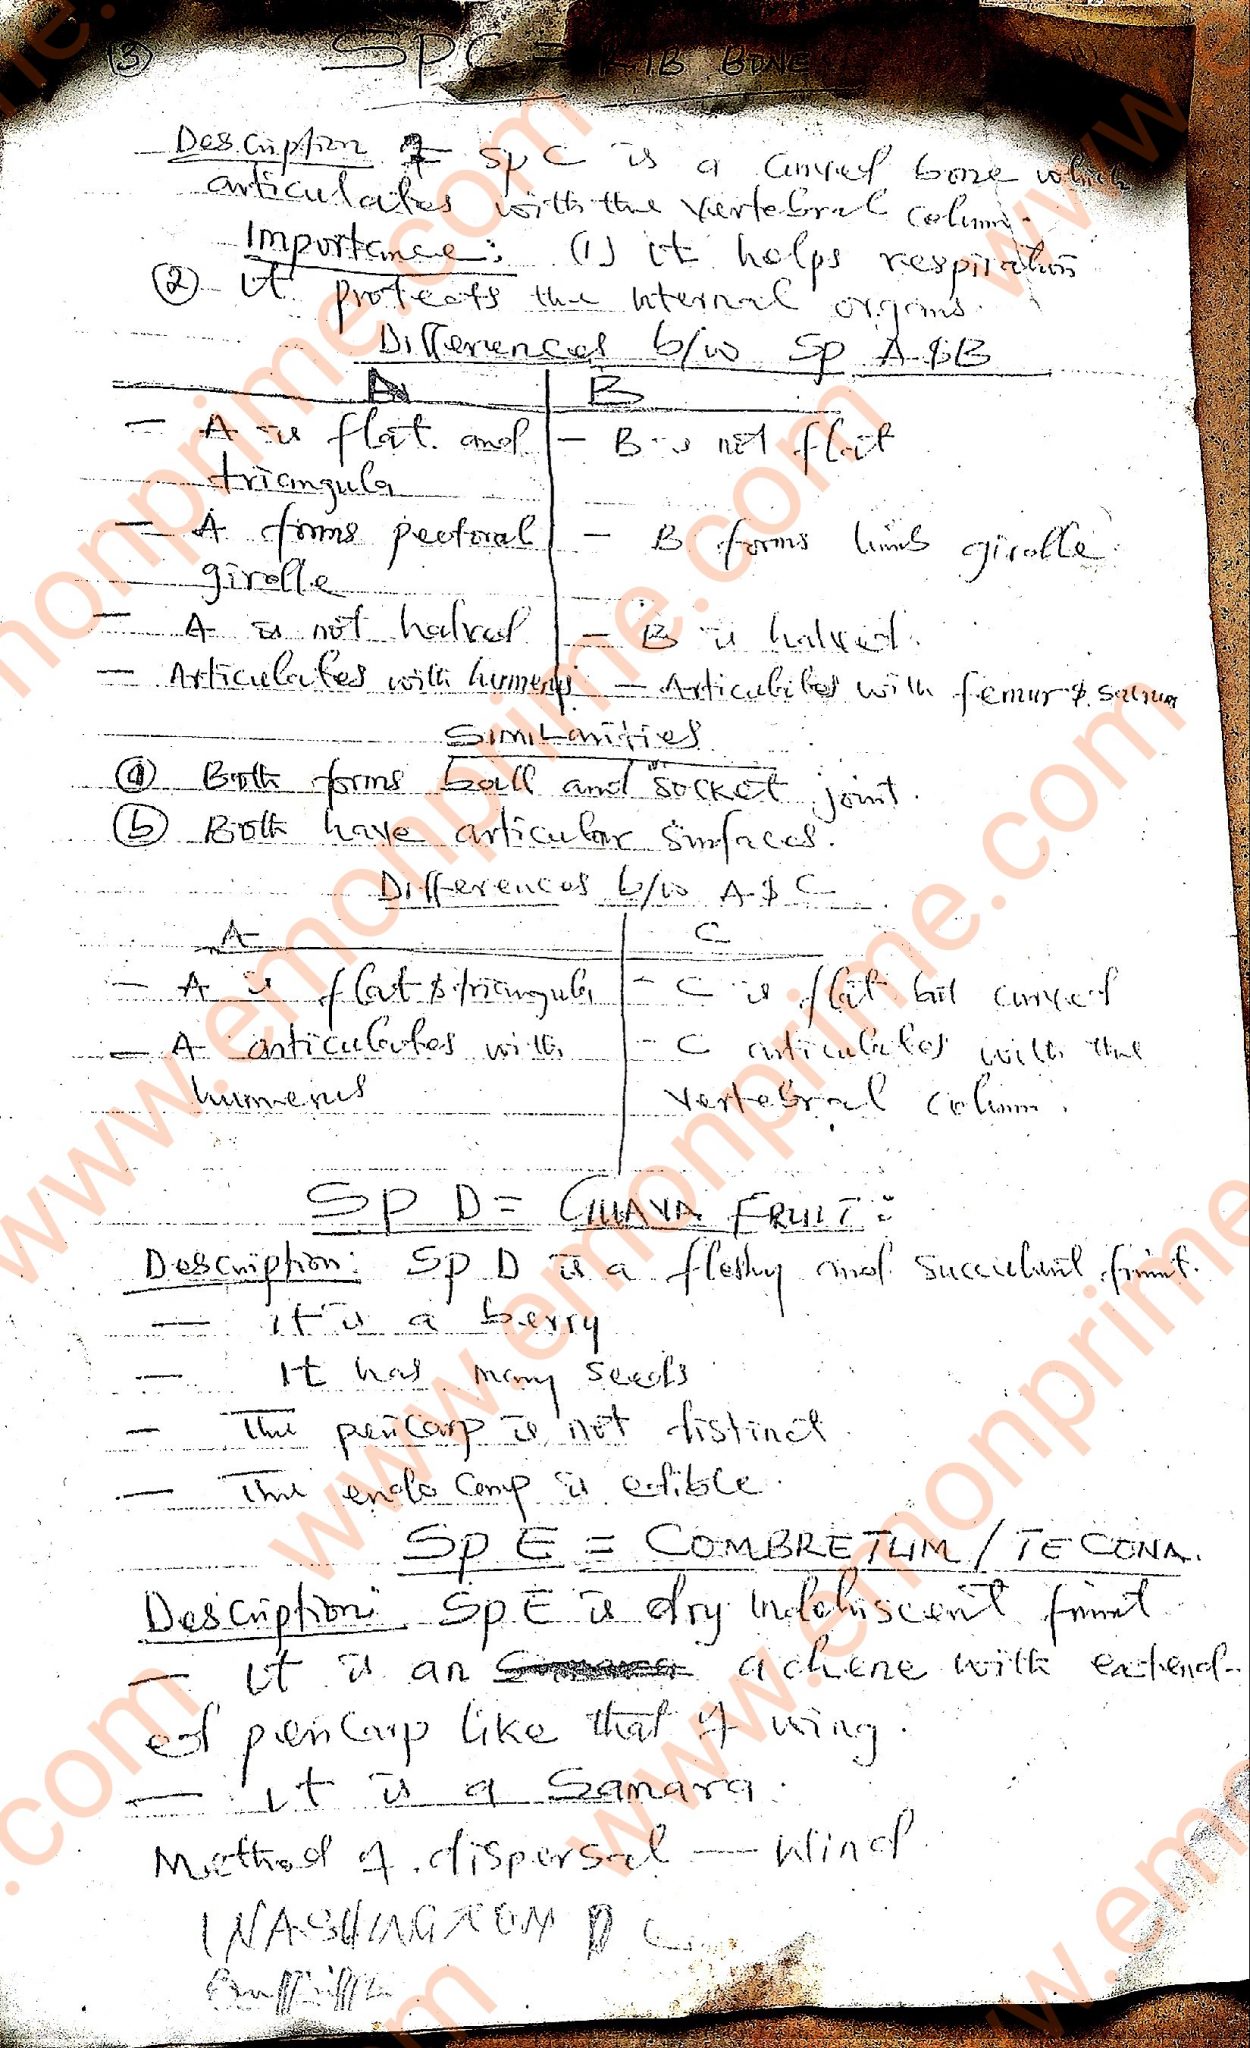 ③ SPC = RIB BONE
Description of sp C is a curved bone which
articulates with the vertebral column.
Importance: (1) it helps respiration
② it protects the internal organs.
Differences b/w Sp A & B
A B
- A is flat and - B is not flat
triangula
- A forms pectoral - B forms limb girdle
girdle
- A is not halved - B is halved.
- Articulates with humerus - Articulates with femur & sacrum
Similarities
ⓐ Both forms ball and socket joint.
ⓑ Both have articular surfaces.
Differences b/w A & C
A C
- A is flat & triangula - C is flat but curved
- A articulates with - C articulates with the
humerus vertebral column.
Sp D = GUAVA FRUIT:
Description: Sp D is a fleshy and succulent fruit.
- it is a berry
- It has many seeds
- The pericarp is not distinct
- The endocarp is edible.
Sp E = COMBRETUM / TECONA.
Description: Sp E is dry indehiscent fruit
- it is an achene with extend-
ed pericarp like that of wing.
- it is a Samara.
Method of dispersal - Wind
WASHINGTON D C
www.emonprime.com